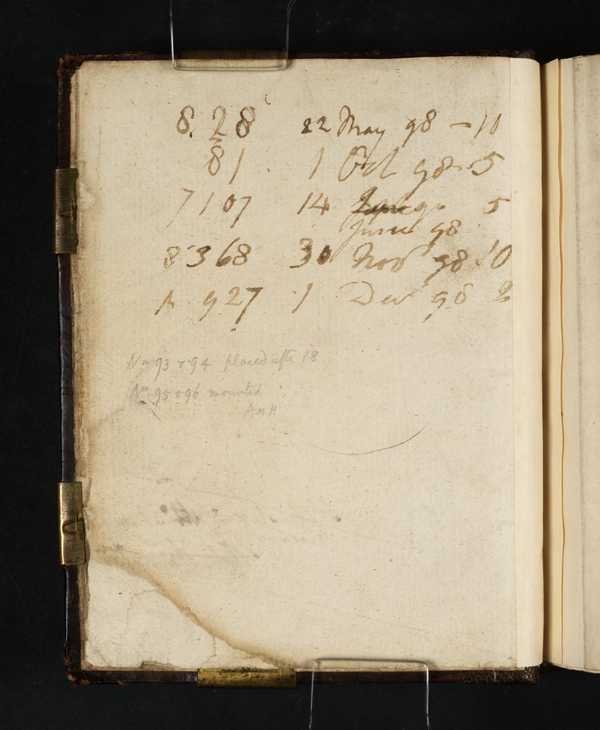 8. 28 22 May 98 – 10
81 1 Oct 98 – 5
7107 14 June 98 5
June 98
8368 30 Nov 98 10
A 927 1 Dec 98 2
Nos 93 & 94 placed after 18
Nos 95 & 96 mounted